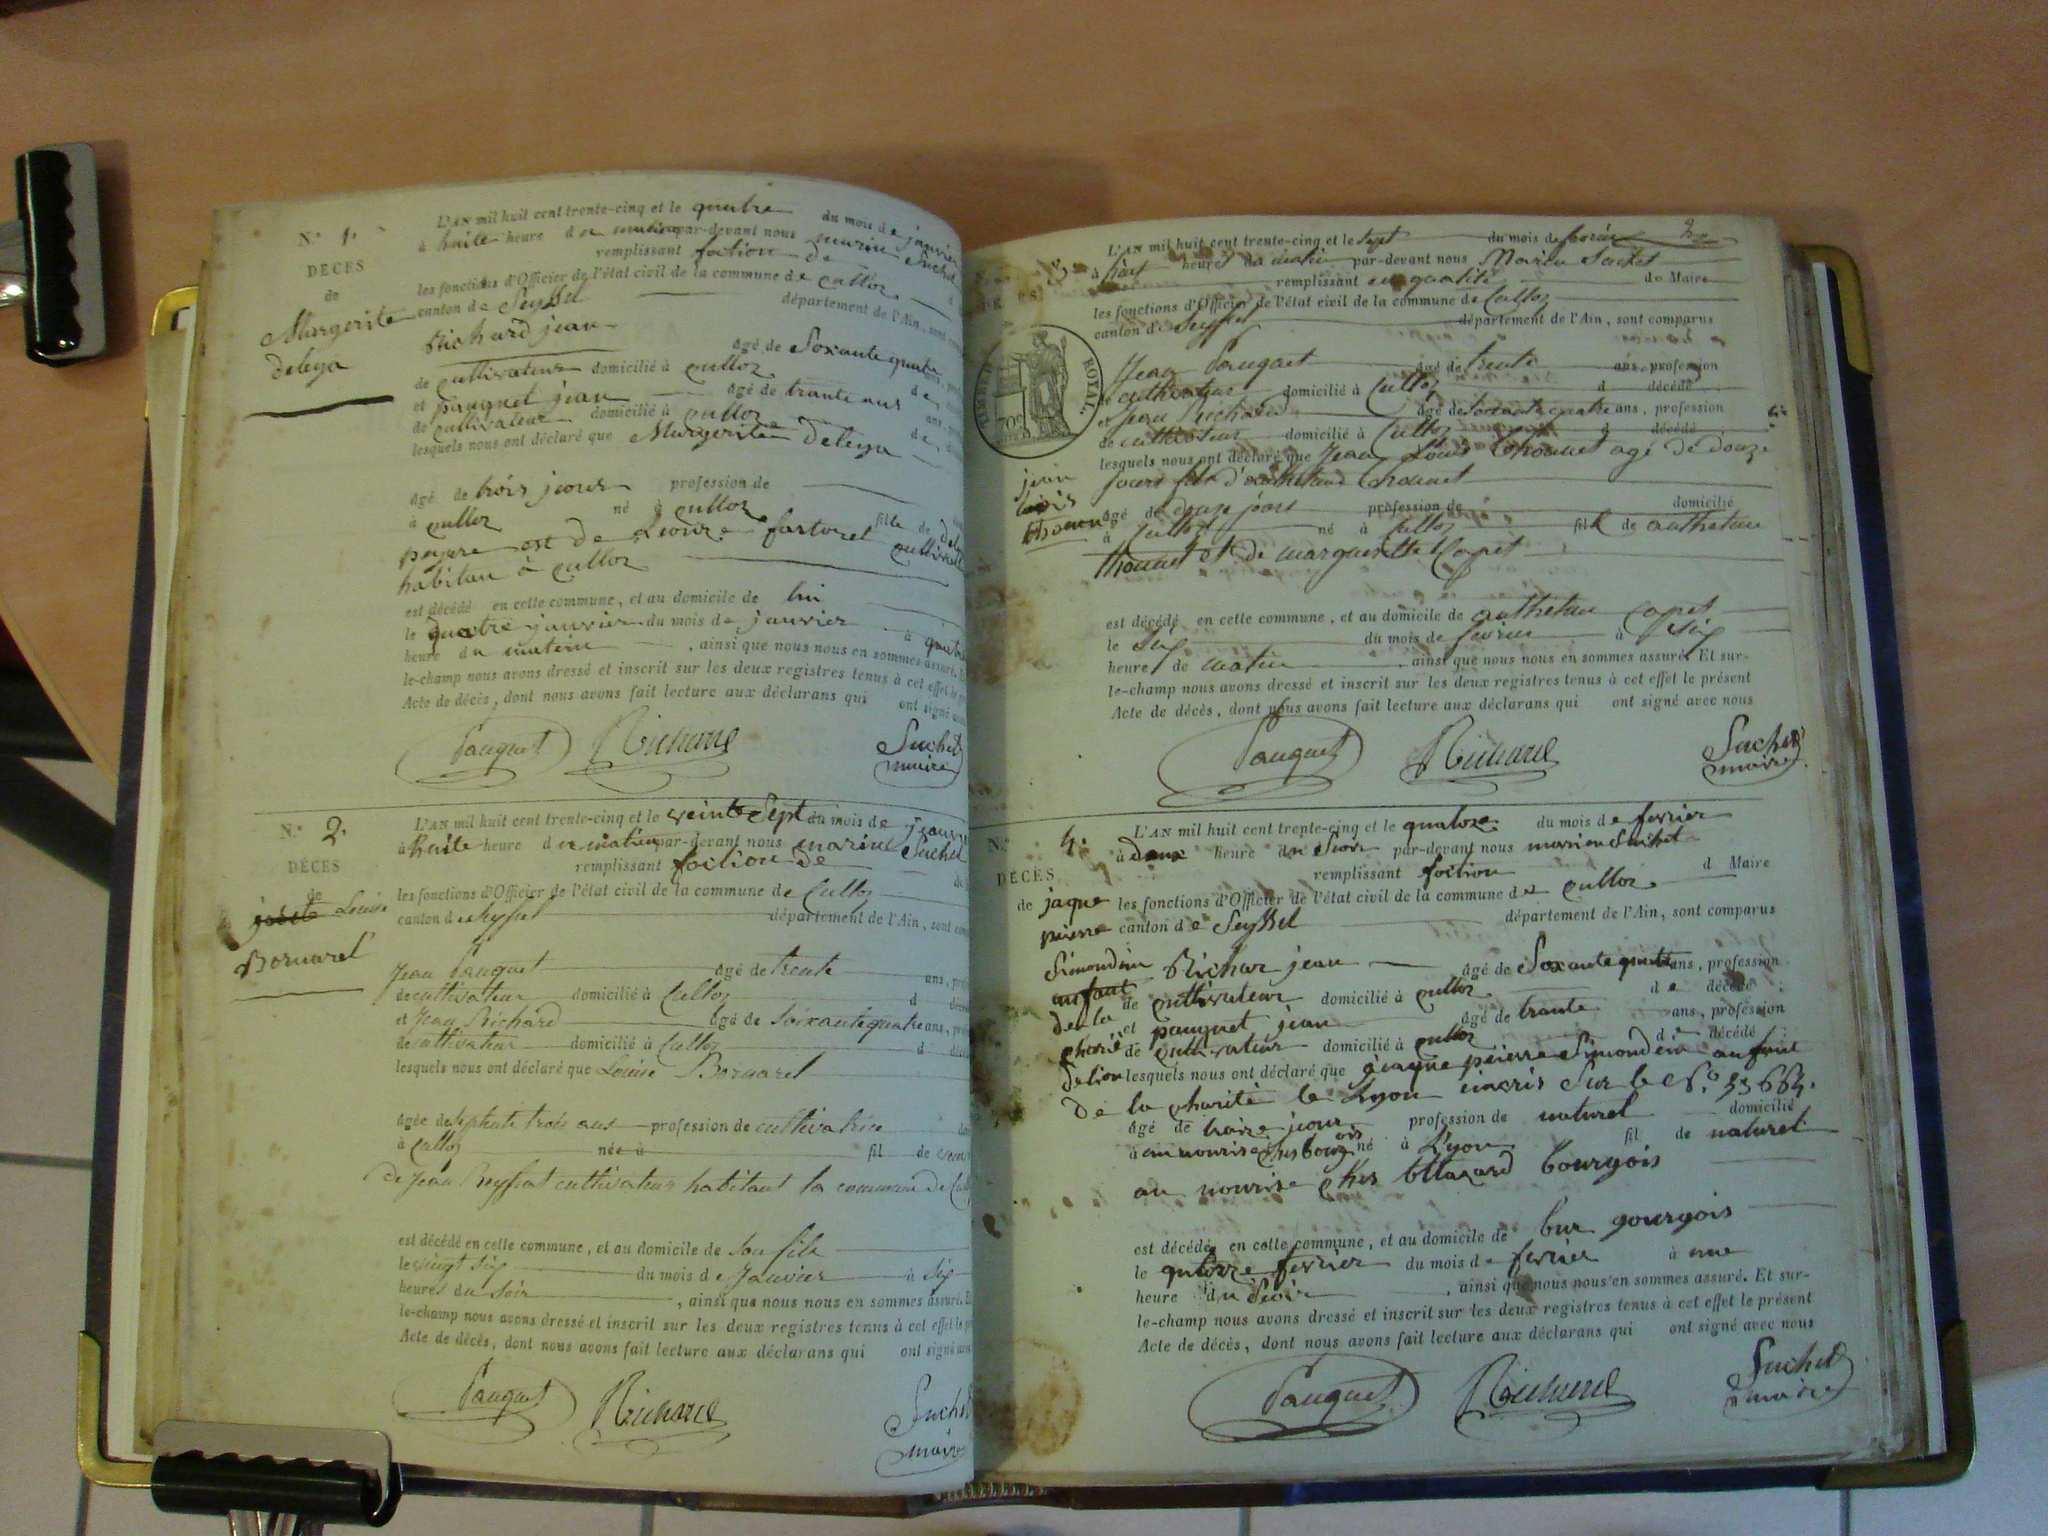 N.° 1.
DÉCÈS
de
Margerite
deleya
L'AN mil huit cent trente-cinq et le quatre du mois de janvier
à huite heure du matin par-devant nous marin Suchet
remplissant foction de
les fonctions d'Officier de l'état civil de la commune de culloz
canton de Seyssel département de l'Ain, sont
Richard jean âgé de Soxante quatre
de cultivateur domicilié à culloz de
et pauquet jean âgé de trante ans ans
de cultivateur domicilié à culloz de
lesquels nous ont déclaré que Margerite deleya
âgé de trois jours profession de
à culloz né à culloz fille de
peyre est de Leonze fartoret
habitan à culloz
est décédé en cette commune, et au domicile de lui
le quatre janvier du mois de janvier à quatre
heure du matin , ainsi que nous nous en sommes assuré.
le-champ nous avons dressé et inscrit sur les deux registres tenus à cet effet le
Acte de décès, dont nous avons fait lecture aux déclarans qui ont signé
Pauquet Richard Suchet
maire
N.° 2.
DÉCÈS
de
Louise
Bornarel
L'AN mil huit cent trente-cinq et le veinte Sept du mois de janvier
à huite heure du matin par-devant nous marin Suchet
remplissant foction de
les fonctions d'Officier de l'état civil de la commune de Culloz
canton de seyssel département de l'Ain, sont
Jean Pauquet âgé de trente ans,
de cultivateur domicilié à Culloz d
et Jean Richard âgé de soixante quatre ans,
de cultivateur domicilié à Culloz d
lesquels nous ont déclaré que Louise Bornarel
âgée de septante trois ans profession de cultivatrice
à Culloz née à fil de
de Jean cultivateur habitant la commune de
est décédé en cette commune, et au domicile de son fils
le vingt six du mois de Janvier à six
heures du soir , ainsi que nous nous en sommes assuré.
le-champ nous avons dressé et inscrit sur les deux registres tenus à cet effet le
Acte de décès, dont nous avons fait lecture aux déclarans qui ont signé
Pauquet Richard Suchet
maire
3.
TIMBRE ROYAL
70c
jean
louis
thonnet
L'AN mil huit cent trente-cinq et le sept du mois de février
à huit heures du matin par-devant nous Marin Suchet
remplissant en qualité de Maire
les fonctions d'Officier de l'état civil de la commune de Culloz
canton de Seyssel département de l'Ain, sont comparus
Jean Pauquet âgé de trente ans, profession
de cultivateur domicilié à Culloz d décédé
et Jean Richard âgé de soixante quatre ans, profession
de cultivateur domicilié à Culloz d décédé
lesquels nous ont déclaré que Jean Louis Thonnet agé de douze
jours fils d'anthelme thonnet
âgé de douze jours profession de domicilié
à Culloz né à Culloz fils de anthelme
thonnet et de marguerite Capet
est décédé en cette commune, et au domicile de anthelme Capet
le six du mois de fevrier à six
heure de matin , ainsi que nous nous en sommes assuré. Et sur-
le-champ nous avons dressé et inscrit sur les deux registres tenus à cet effet le présent
Acte de décès, dont nous avons fait lecture aux déclarans qui ont signé avec nous
Pauquet Richard Suchet
maire
N.° 4.
DÉCÈS
de jaque
pierre
Simondin
anfant
de la
charité
de lion
L'AN mil huit cent trente-cinq et le quatoze du mois de fevrier
à deux heure du Soir par-devant nous marien Suchet
remplissant foction d Maire
les fonctions d'Officier de l'état civil de la commune de culloz
canton de Seyssel département de l'Ain, sont comparus
Richar jean âgé de Soxante quatre ans, profession
de cultivateur domicilié à culloz de décédé
et pauquet jean âgé de trante ans, profession
de cultivateur domicilié à culloz d décédé
lesquels nous ont déclaré que jaque pierre Simondin anfant
de la charité le Lyon inscris Sur le N.°
âgé de traize jour profession de naturel domicilié
à an nourise né à Lyon fil de naturel
au nourise ches bourgois
est décédé en cette commune, et au domicile de
le du mois de fevrier à une
heure du Soir , ainsi que nous nous en sommes assuré. Et sur-
le-champ nous avons dressé et inscrit sur les deux registres tenus à cet effet le présent
Acte de décès, dont nous avons fait lecture aux déclarans qui ont signé avec nous
Pauquet Richard Suchet
maire